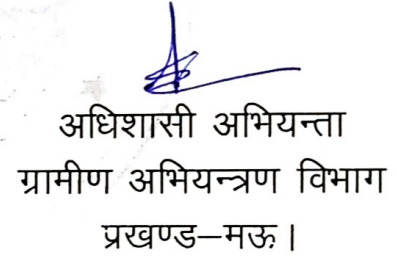 अधिशासी अभियन्ता
ग्रामीण अभियन्त्रण विभाग
प्रखण्ड–मऊ।